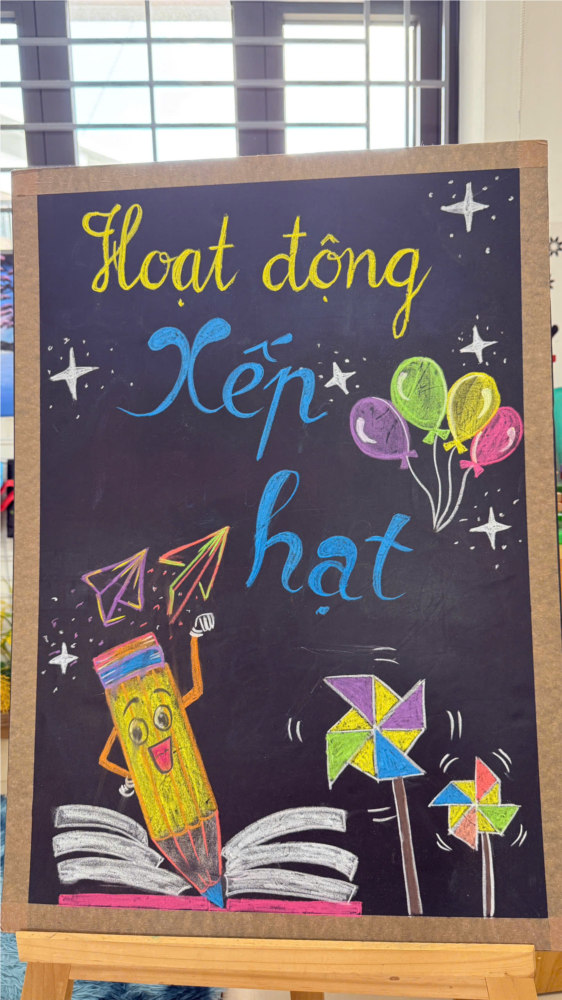 Hoạt động
Xếp
hạt